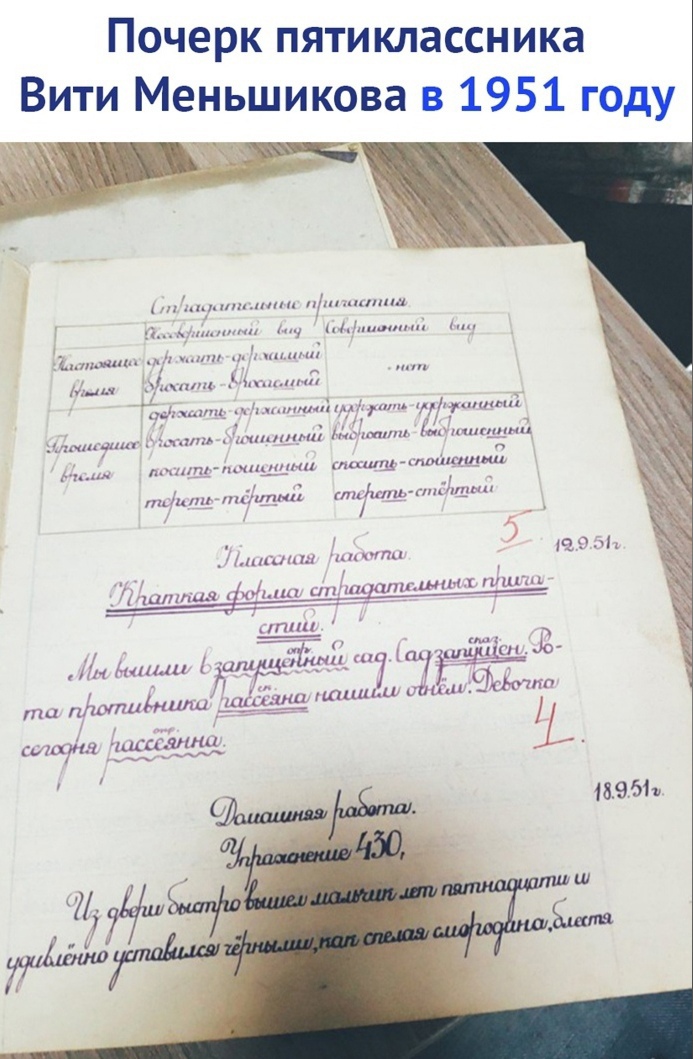 Почерк пятиклассника
Вити Меньшикова в 1951 году
Страдательные причастия.
Несовершенный вид Совершенный вид
Настоящее время держать-держимый - нет
бросать-бросаемый
Прошедшее время держать-держанный удержать-удержанный
бросать-брошенный выбросить-выброшенный
косить-кошенный скосить-скошенный
тереть-тёртый стереть-стёртый
5
Классная работа. 12.9.51г.
Краткая форма страдательных прича-
стий.
опр. сказ.
Мы вышли в запущенный сад. Сад запущен. Ро-
ск.
та противника рассеяна нашим огнём. Девочка
опр.
сегодня рассеянна.
4
Домашняя работа. 18.9.51г.
Упражнение 430,
Из двери быстро вышел мальчик лет пятнадцати и
удивлённо уставился чёрными, как спелая смородина, блестя